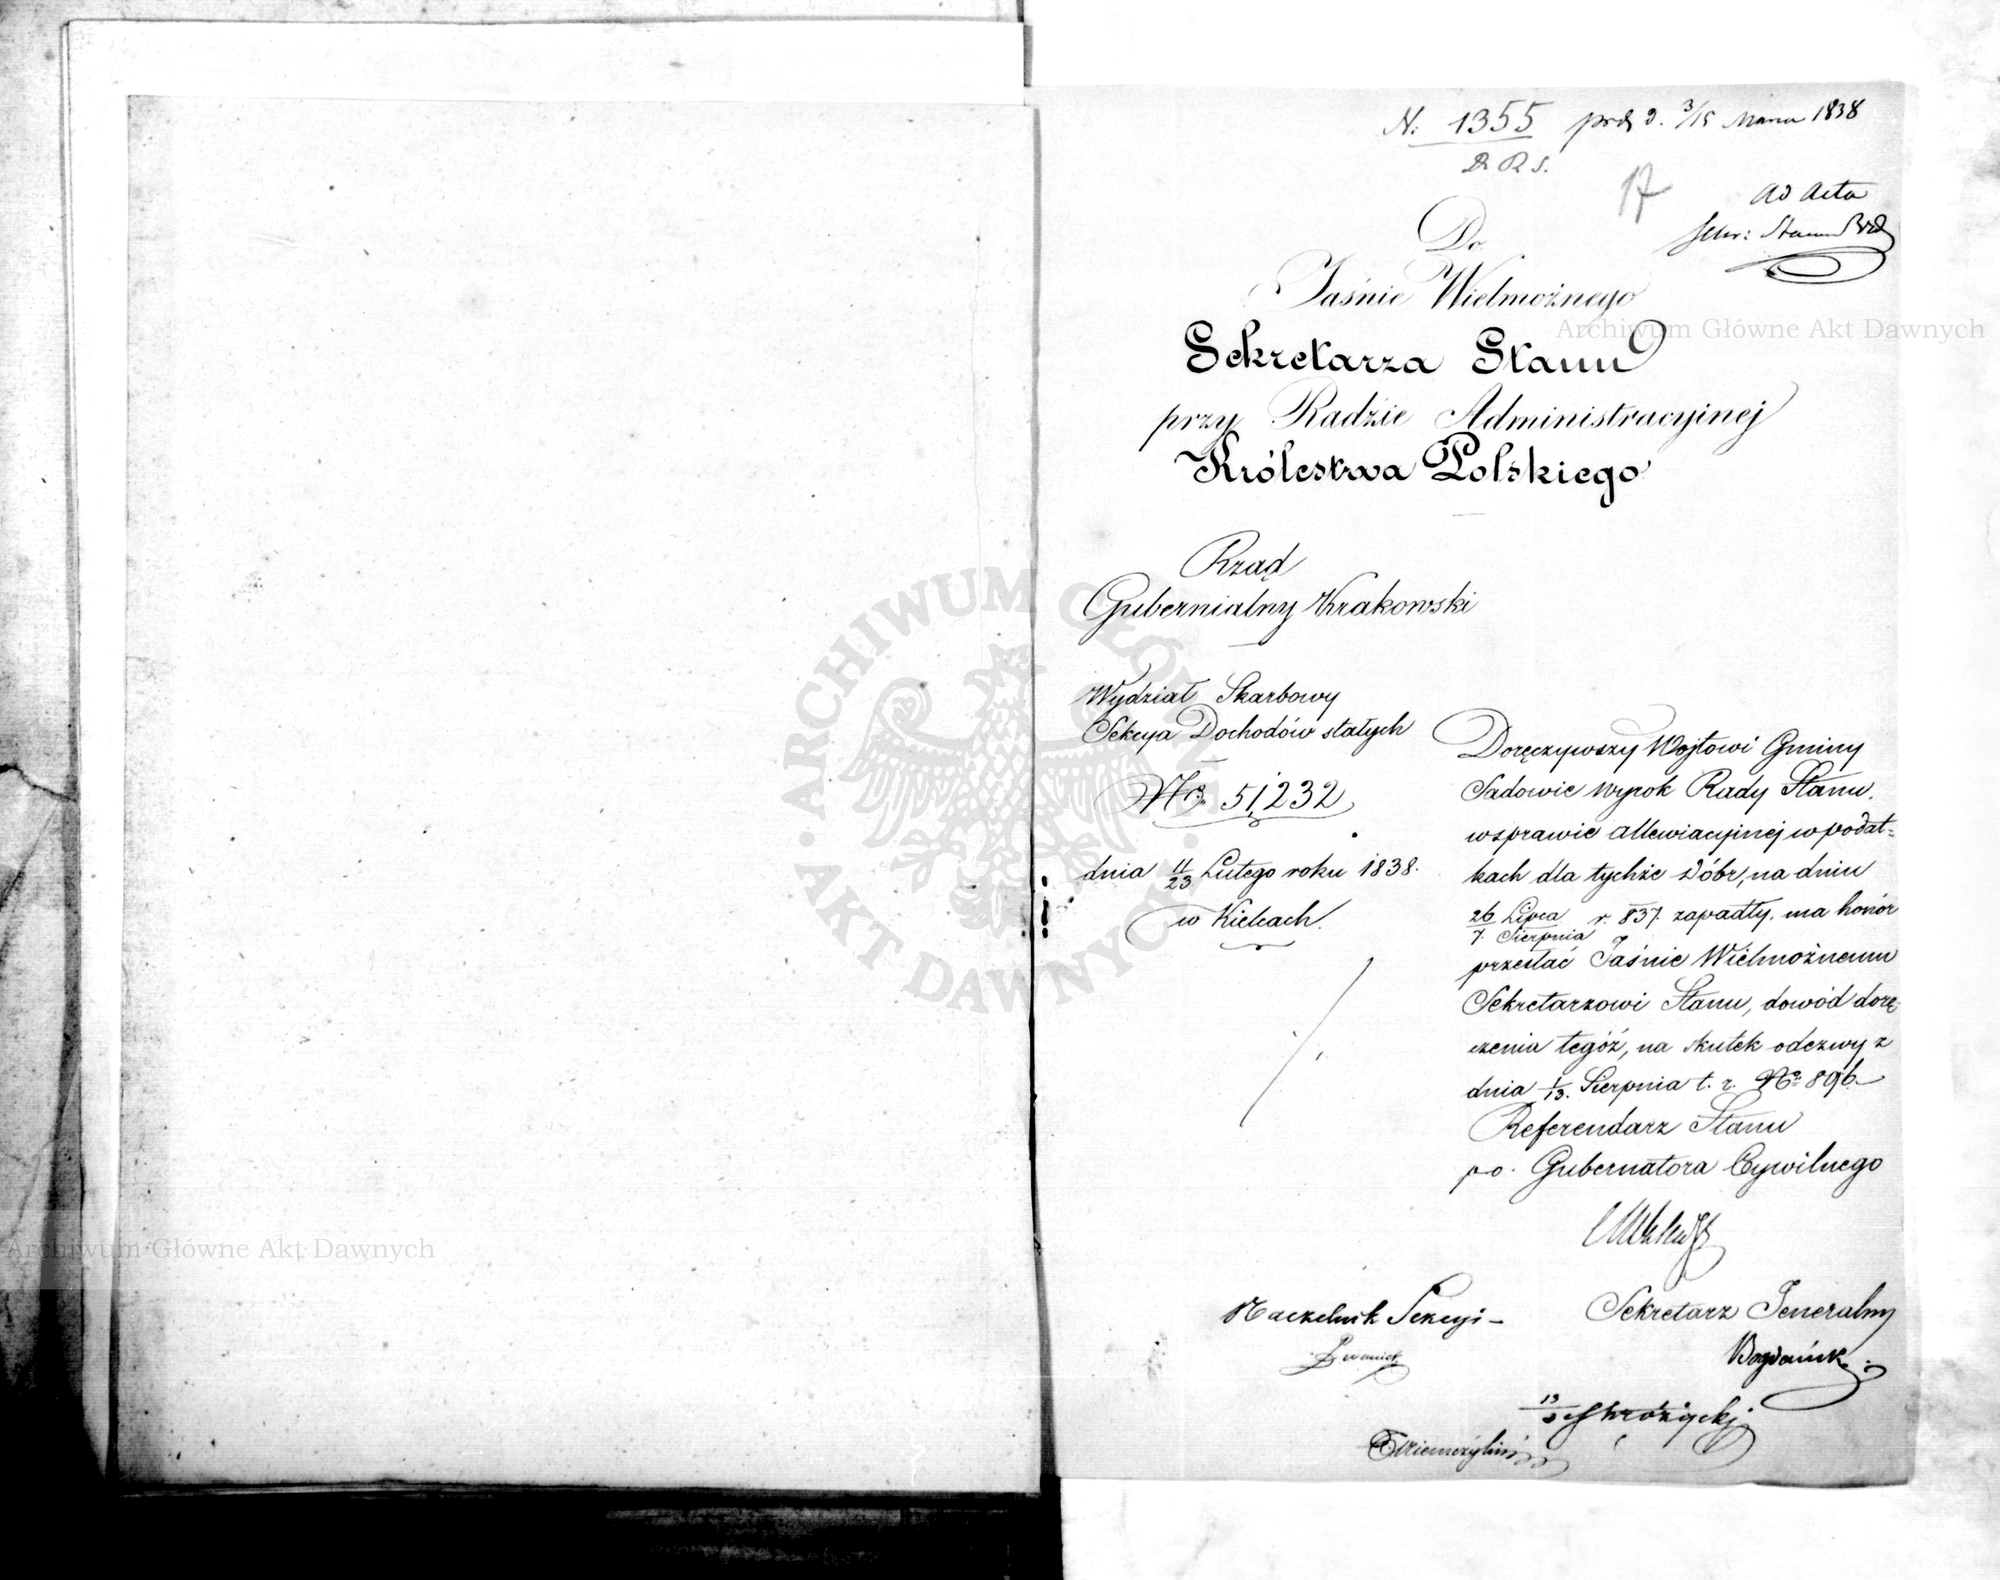 N: 1355 d. 3/15 Marca 1838
D. R. S.
17
Ad Acta
Sekr: Stanu
Do
Jaśnie Wielmożnego
Sekretarza Stanu
przy Radzie Administracyjnej
Królestwa Polskiego
Rząd
Gubernialny Krakowski
Wydział Skarbowy
Sekcya Dochodów stałych
Nro 51,232
dnia 11/23 Lutego roku 1838.
w Kielcach.
Doręczywszy Wojtowi Gminy
Sadowie wyrok Rady Stanu,
w sprawie allewiacyjnej w podat-
kach dla tychże dóbr, na dniu
26 Lipca/7. Sierpnia r. 837. zapadły, ma honor
przesłać Jaśnie Wielmożnemu
Sekretarzowi Stanu, dowód dorę-
czenia tegóż, na skutek odezwy z
dnia 1/13. Sierpnia t. r. No 896.
Referendarz Stanu
p.o. Gubernatora Cywilnego
Naczelnik Sekcyi
Sekretarz Jeneralny
Archiwum Główne Akt Dawnych
Archiwum Główne Akt Dawnych
ARCHIWUM GŁÓWNE AKT DAWNYCH